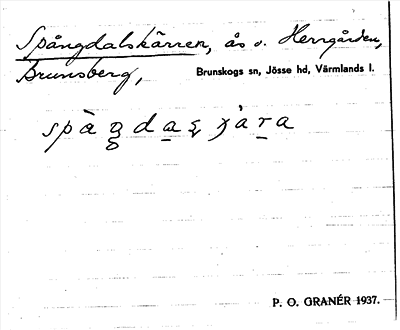 Spångdalskärren, ås s. Herrgården,
Brunsberg, Brunskogs sn, Jösse hd, Värmlands l.
P. O. GRANÉR 1937.